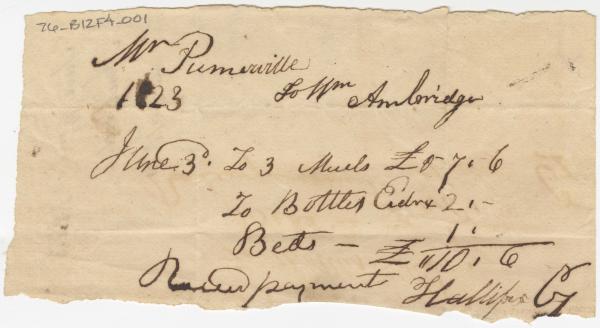 76_B12F4_001
Mr Pumerville
1823 To Wm Ambridge
June 3d. To 3 Meels £0 7. 6
To Bottles Cider 2 . -
Beds - 1.
£ " 10 . 6
Received payment Hallifax Cy